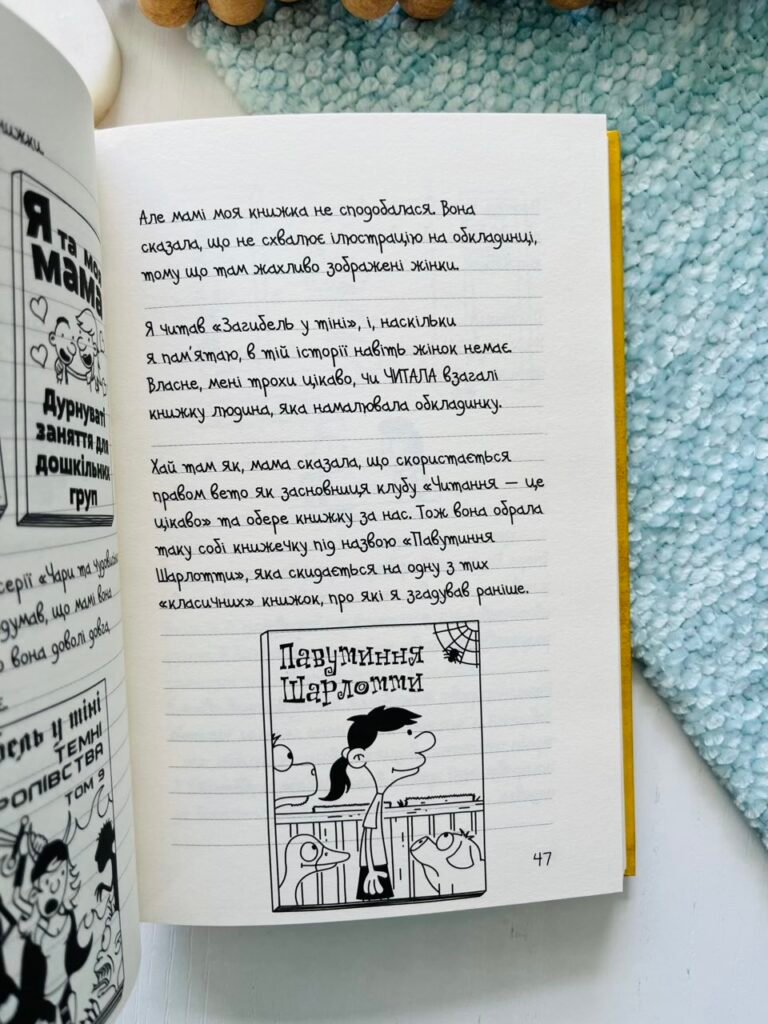 нижки.
Я
та моя
мама
Дурнуваті
заняття для
дошкільних
груп
серії «Чари та
думав, що мамі вона
о вона доволі довга.
у тіні
ТЕМНІ
ТОМ 9
Але мамі моя книжка не сподобалася. Вона
сказала, що не схвалює ілюстрацію на обкладинці,
тому що там жахливо зображені жінки.
Я читав «Загибель у тіні», і, наскільки
я пам'ятаю, в тій історії навіть жінок немає.
Власне, мені трохи цікаво, чи ЧИТАЛА взагалі
книжку людина, яка намалювала обкладинку.
Хай там як, мама сказала, що скористається
правом вето як засновниця клубу «Читання — це
цікаво» та обере книжку за нас. Тож вона обрала
таку собі книжечку під назвою «Павутиння
Шарлотти», яка скидається на одну з тих
«класичних» книжок, про які я згадував раніше.
Павутиння
Шарлотти
47